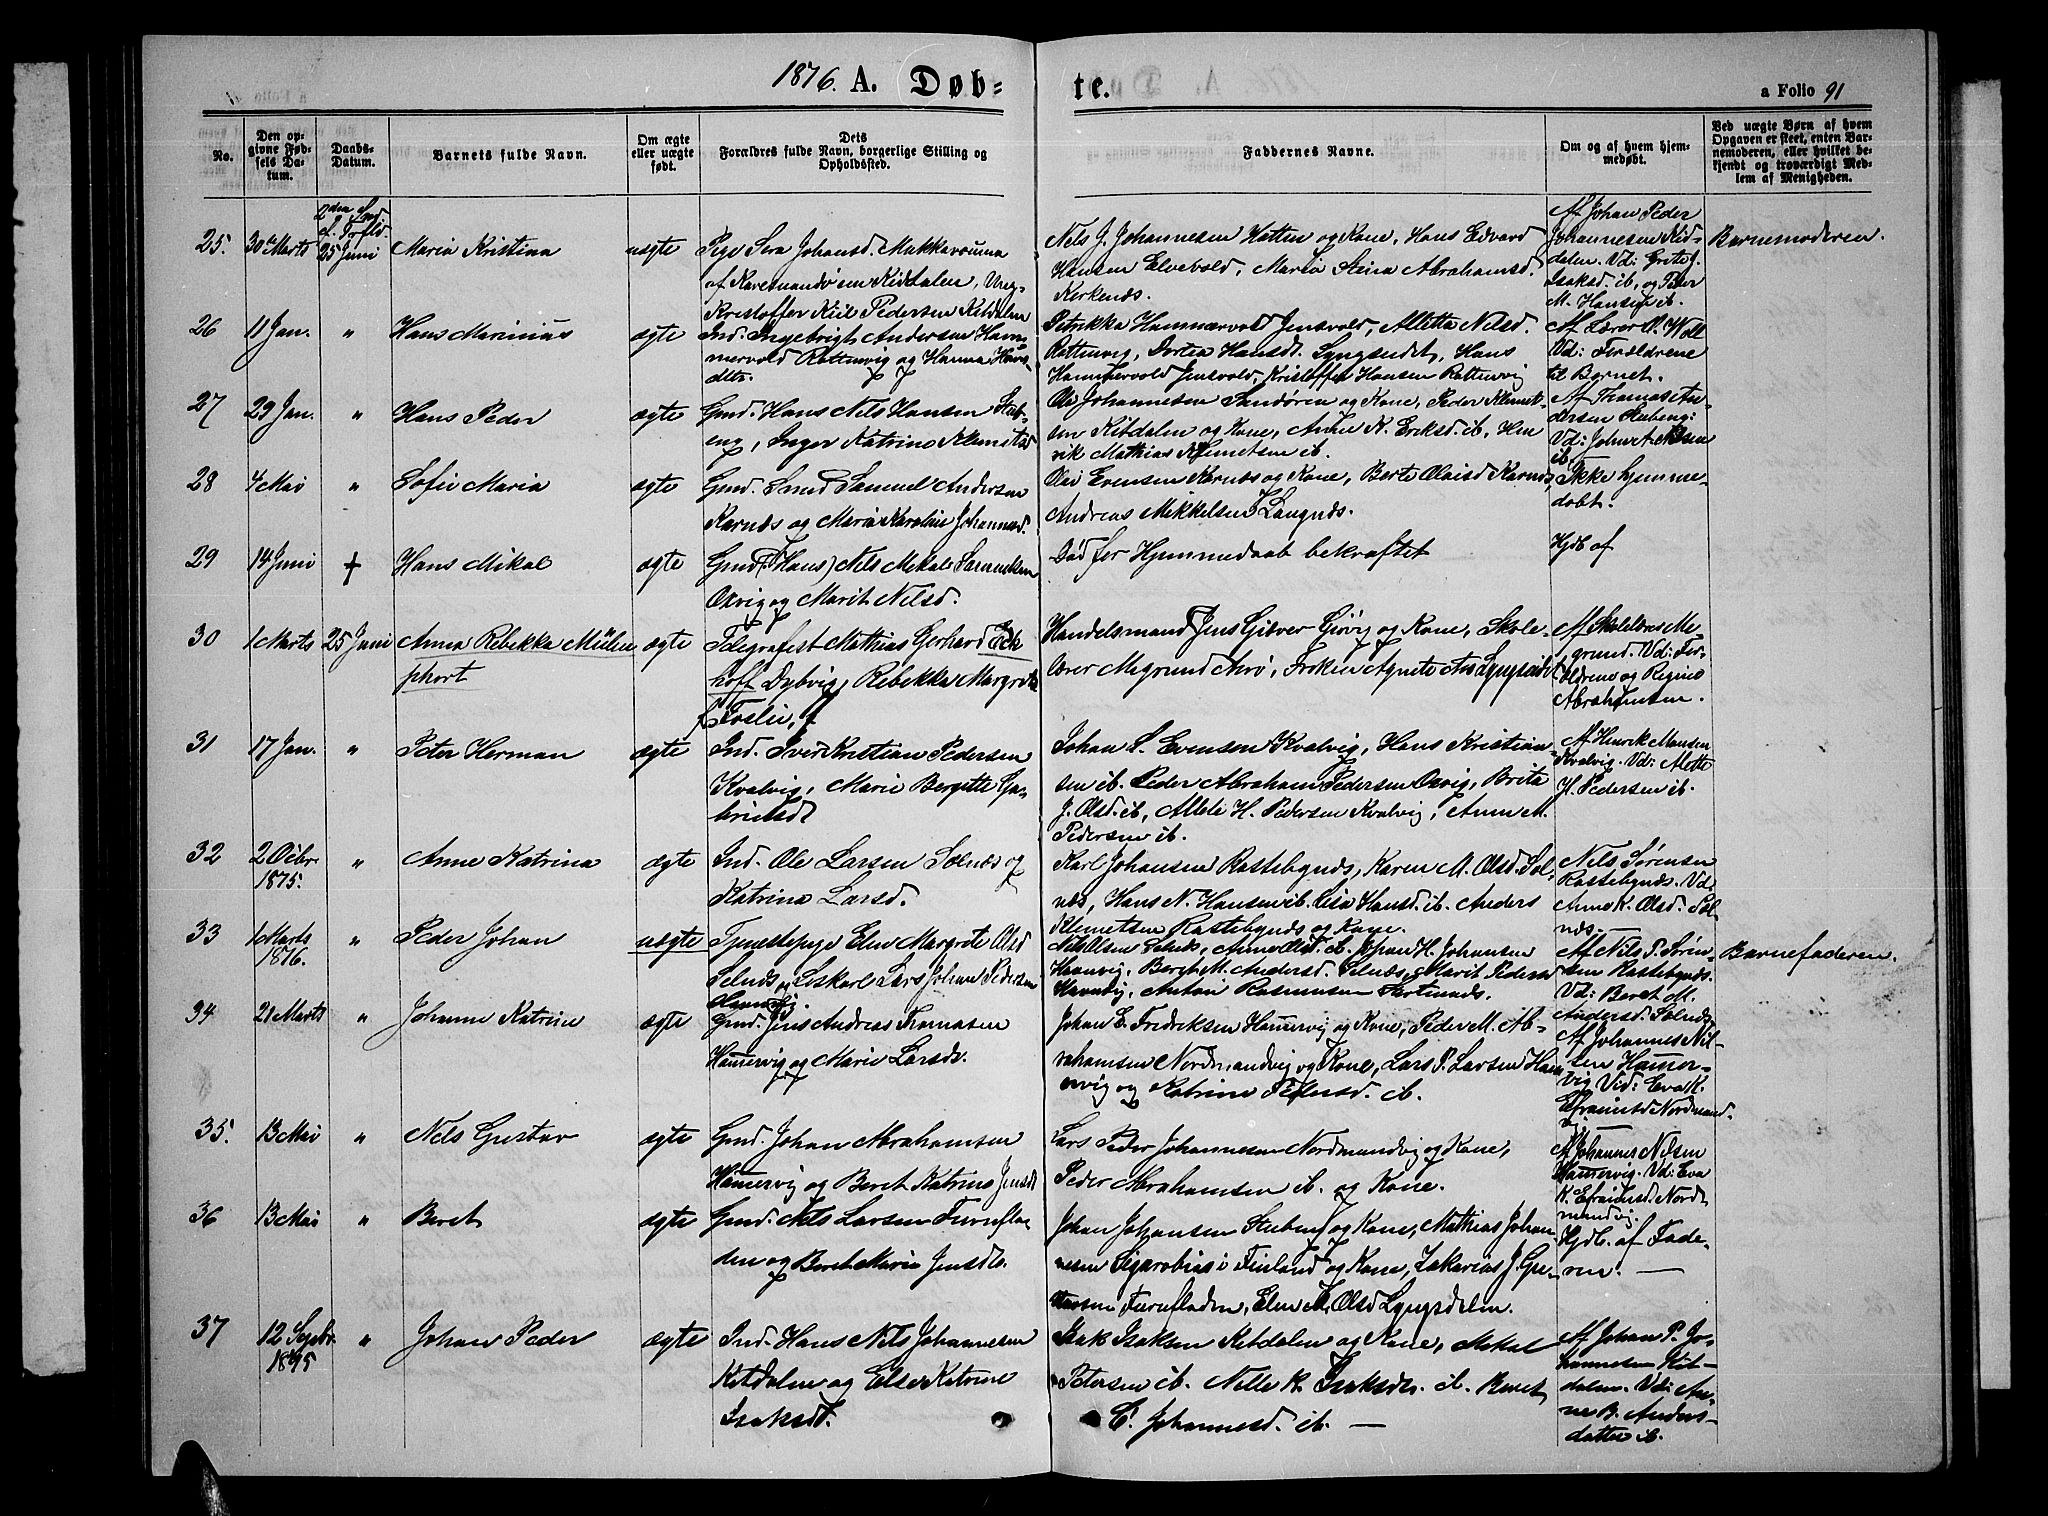 1876. A. Døb=
te.
a Folio 91
No.
Den op-
givne Fød-
sels Da-
tum.
Daabs-
Datum.
Barnets fulde Navn.
Om ægte
eller uægte
født.
Dets
Forældres fulde Navn, borgerlige Stilling og
Opholdssted.
Faddernes Navne.
Om og af hvem hjem-
medøbt.
Ved uægte Børn af hvem
Opgaven er skeet, enten Bar-
nemoderen, eller hvilket be-
kjendt og troværdigt Med-
lem af Menigheden.
25. 30te Marts
25 Juni Maria Kristina uægte Pige Johansd. Makkavouma
af Karesuando i Kitdalen, Ung-
Kristoffer Kiil Pedersen Kitdalen
Nels J. Johannesen Hatten og Kone, Hans Edvard
Hansen Elvevold, Maria Stina Abrahamsd.
Kerkenæs.
Af Johan Peder
Johannesen Kid-
dalen. Vd: Grete J.
Isaksd. ib, og Peder
M. Hansen ib.
Barnemoderen.
26 11 Jan. " Hans Marinius ægte Ind. Ingebrigt Andersen Ham-
mervold Rottenvig og Hanna Hans-
dtr.
Petrikka Hammervold Jensvold, Alletta Nilsd.
Rottenvig, Dortea Hansdt. Lyngseidet, Hans
Hammervold Jensvold, Kristoffer Hansen Rottenvig
Af Lærer O. Woll
Vd: Forældrene
til Barnet.
27 29 Jan. " Hans Peder ægte Gmd. Hans Nils Hansen Stub-
eng, Inger Katrine Klemetsd
Ole Johannesen Sandøren og Kone, Peder Klemet-
sen Kitdalen og Kone, Anne K. Eriksd. ib, Hen
rik Mathias Klemetsen ib.
Af Thomas An-
dersen Stubeng:
Vd:
ib.
28 4 Mai " Sofie Maria ægte Gmd. Samuel Andersen
Karnæs og Maria Karoline Johannesd.
Ole Evensen Karnæs og Kone, Berte Olaisd Karnæs,
Andreas Mikkelsen Langnæs.
Ikke hjemme-
døbt.
29 14 Juni + Hans Mikal ægte Gmd (Hans) Nels Mekal Samuelsen
Oxvig og Marit Nelsd.
Død før Hjemmedaab bekræftet
Hjdb af
30 1 Marts 25 Juni Anna Rebekka Mülen
phort
ægte Telegrafist Mathias Gerhard Eck
hoff Dybvig, Rebekka Margrete
Foslie,
Handelsmand Jens Giæver Gjøvig og Kone, Skole-
lærer Megrund Aarø, Frøken Agnete Lyngseidet
Af Skolelærer Me-
grund. Vd: For-
ældrene og Regine
Abrahamsen.
31 17 Jan. " Peter Herman ægte Ind. Iver Kristian Pedersen
Kvalvig, Marie Bergitte Ga-
brielsd
Johan S. Evensen Kvalvig, Hans Kristian-
sen ib. Peder Abraham Pedersen Oxvig, Brita
J. Olsd. ib, Allete H. Pedersen Kvalvig, Anne M.
Pedersen ib.
Af Henrik Monsen
Kvalvig. Vd: Alette
H. Pedersen ib.
32 2 Octbr.
1875. " Anne Katrina ægte Ind. Ole Larsen Solnæs og
Katrina Larsd.
Karl Johansen Rastebynæs, Karen M. Olsd. Sol-
næs, Hans N. Hansen ib. Lisa Hansd. ib. Anders
Klemetsen Rastebynæs og Kone.
Nels Sørensen
Rastebynæs. Vd:
Anne K. Olsd. Sol-
næs.
33 1 Marts
1876. " Peder Johan uægte Tjenestepige Elen Margrete Olsd
Solnæs og Løskarl Lars Johan Pedersen
Havnvig.
Nils Olsen, Anne Olsd. ib, Johan H. Johansen
Havnvig, Beret M. Andersd. Solnæs, Marit Pedersd
Havnvig, Anton Rasmussen.
Af Nils P. Søren-
sen Rastebynæs.
Vd: Beret M.
Andersd. Solnæs
Barnefaderen.
34 21 Marts " Johanne Katrine ægte Gmd. Jens Andreas Tomasen
Hamervig og Marie Larsdr.
Johan E. Fredriksen Hamervig og Kone, Peder M. Ab-
rahamsen Nordmandvig og Kone, Lars P. Larsen Ham-
ervig og Katrine Pedersd. ib.
Af Johannes Nil-
sen Hamer-
vig Vid: Eva K.
Efraimsd Nordmand-
vig.
35. 13 Mai " Nels Gustav ægte Gmd. Johan Abrahamsen
Hamervig og Beret Katrine Jensdt
Lars Peder Johannesen Nordmandvig og Kone,
Peder Abrahamsen ib. og Kone.
Af Johannes Nelsen
Hamervig. Vd: Eva
K. Efraimsd. Nord-
mandvig.
36 13 Mai " Beret ægte Gmd. Nels Larsen Furufla-
den og Beret Maria Jensdtr.
Johan Johansen Stubeng og Kone, Mathias Johan-
nesen Sigarobias i Finland og Kone, Zakarias J. Gre-
Furufladen, Elen M. Olsd Lyngsdalen.
Hjdb. af Fade-
ren.
37 12 Septbr.
1875 " Johan Peder ægte Ind. Hans Nils Johannesen
Kitdalen og Else Katrine
Isaksdt.
Isak Isaksen Kitdalen og Kone, Mekal
Petersen ib. Nille K. Isaksdtr. ib. Beret
C. Johannesd. ib.
Af Johan P. Jo-
hannesen Kit-
dalen. Vd: An-
ne B. Anders-
datter ib.